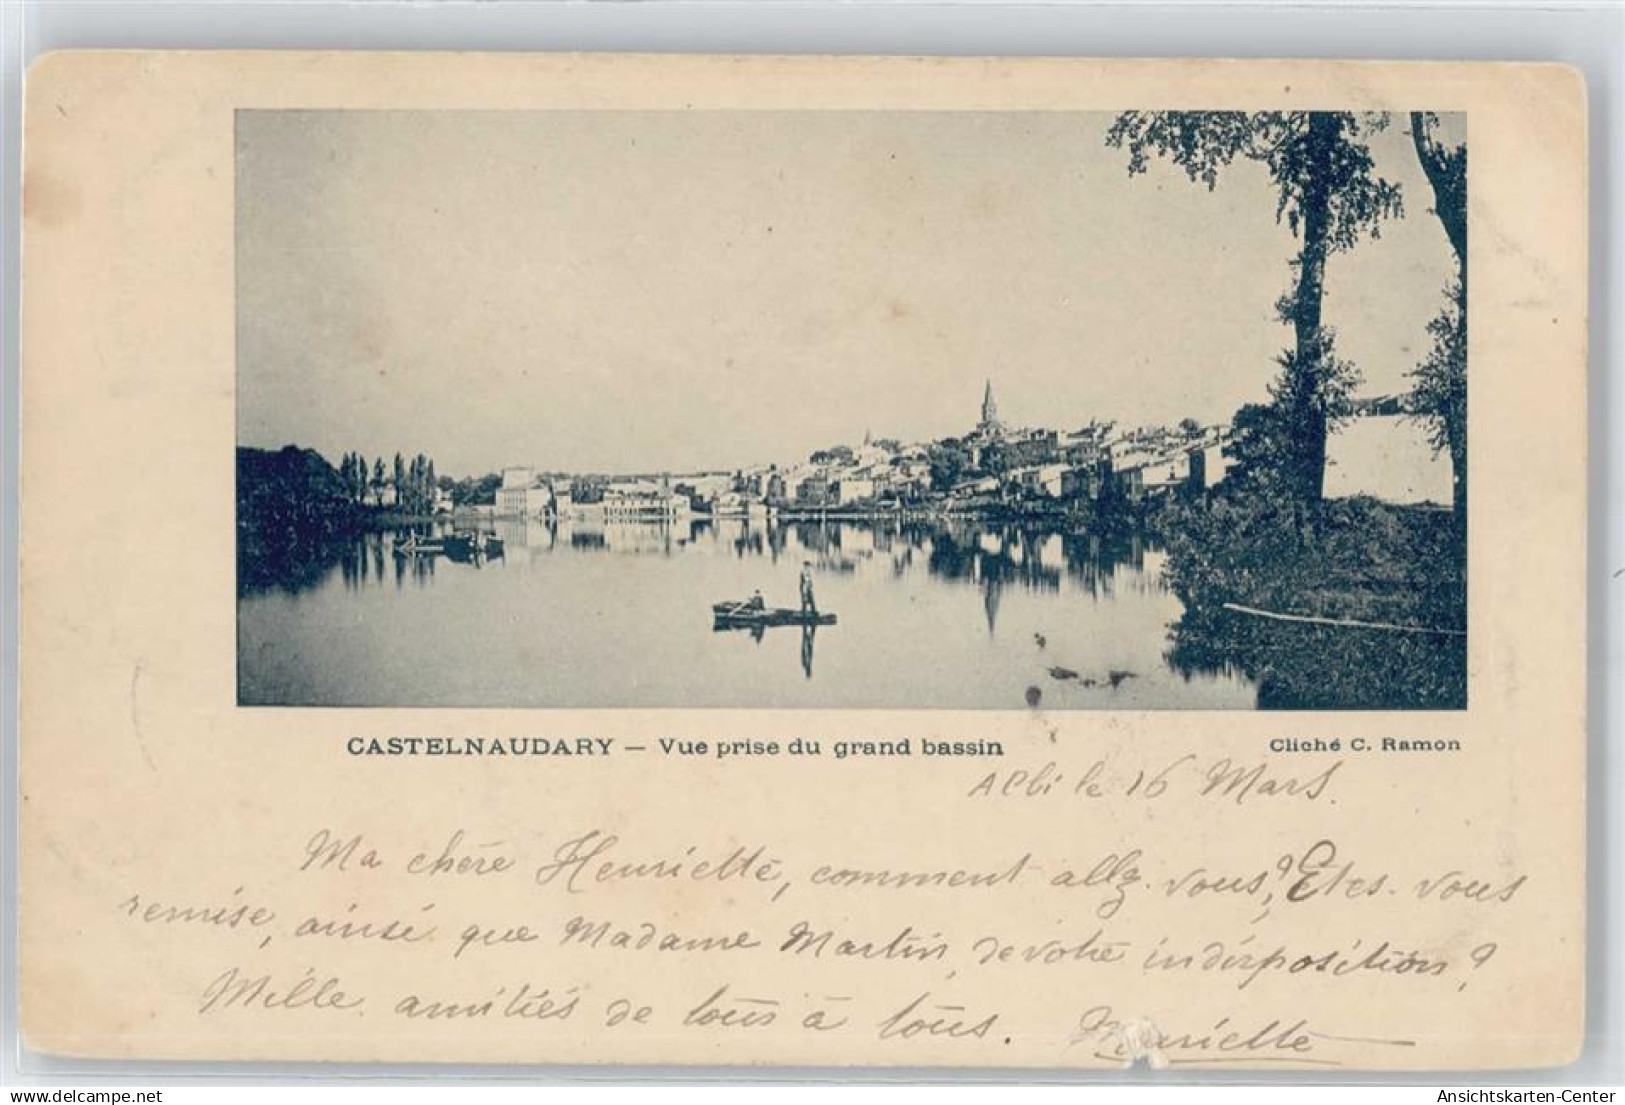 CASTELNAUDARY — Vue prise du grand bassin
Cliché C. Ramon
Albi le 16 Mars.
Ma chère Henriette, comment allez-vous,? Etes-vous
remise, ainsi que Madame Martin, de votre indisposition?
Mille amitiés de tous à tous. Mariette
www.delcampe.net
emlysie
Ansichtskarten-Center